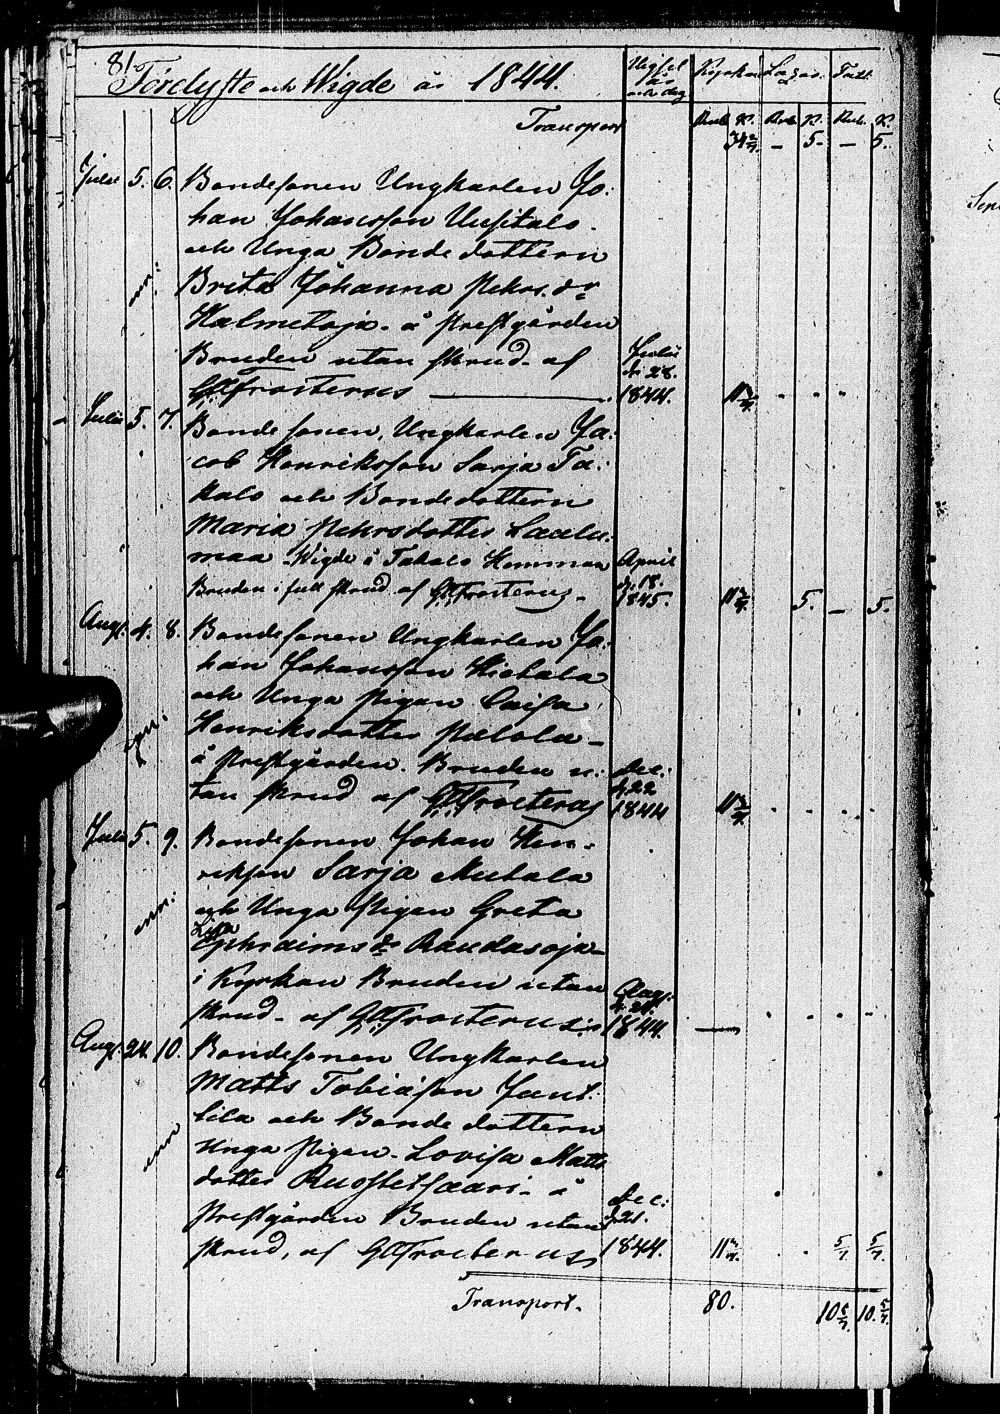 81
Förelyste och Wigde år 1844.
Wigsel år och dag
Kyrkan Lazar. Fatt.
Transport
Rub. K. Rub. K. Rub. K.
34 2/7. — 5. — 5.
Julii 5. 6. Bondesonen Ungkarlen Jo:
han Johansson Uusitalo
och Unga Bonde dottern
Brita Johanna Pehrs dr
Halmetoja - å Prestgården
Bruden utan skrud - af
GAFrosterus
Julii d. 28. 1844.
Julii 5. 7. Bonde sonen, Ungkarlen Ja:
cob Henriksson Sarja Ta:
kalo och Bondedottern
Maria Pehrsdotter Laalu:
maa - Wigde å Takalo Hemman
Bruden i full skrud af GAFrosterus -
April d. 18. 1845.
5. — 5.
Aug. 4. 8. Bondesonen Ungkarlen Jo:
han Johansson Hietala
och Unga Pigan Caisa
Henriksdotter Palola -
å Prestgården. Bruden u:
tan skrud af GAFrosterus
Dec: d. 22 1844
Julii 5. 9. Bondesonen Johan Hen-
riksson Sarja Mutala
och Unga Pigan Greta
Lisa
Ephraims dr Raudasoja -
i Kyrkan Bruden utan
skrud - af GAFrosterus
Aug: 1844. —
Aug. 24. 10. Bondesonen Ungkarlen
Matts Tobiasson Junt:
tila och Bonde dottern
Unga Pigan - Lovisa Matts
dotter Ruostetsaari - å
Prestgården Bruden utan
skrud, af GAFrosterus
Dec: d. 21. 1844.
5/7 5/7
Transport. 80. 10 5/7. 10. 5/7.